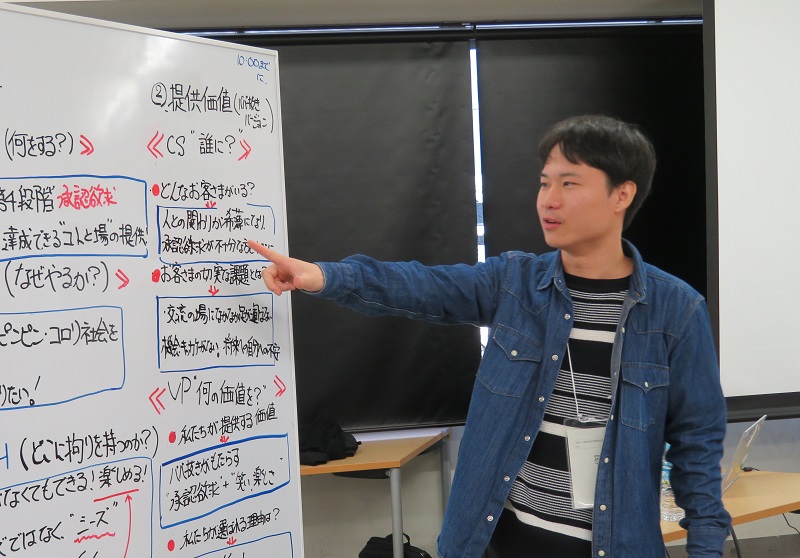 10:00まで
に
(何をする?)
第4段階 承認欲求
達成できる"コトと場"の提供
(なぜやるか?)
ピンピン・コロリ社会を
りたい!
(どこに拘りを持つのか?)
なくてもできる!楽しめる!
ではなく"シーズ"
② 提供価値
CS"誰に?"
どんなお客さまがいる?
人との関わりが希薄になり、
承認欲求が不十分な
お客さまの切実な課題とは
・交流の場になかなか足が運べない
機会もカがない。将来の自分への不安
VP"何の価値を?"
私たちが提供する価値
ババ抜きがもたらす
"承認欲求"+"笑い、楽しさ
私たちが選ばれる理由は?